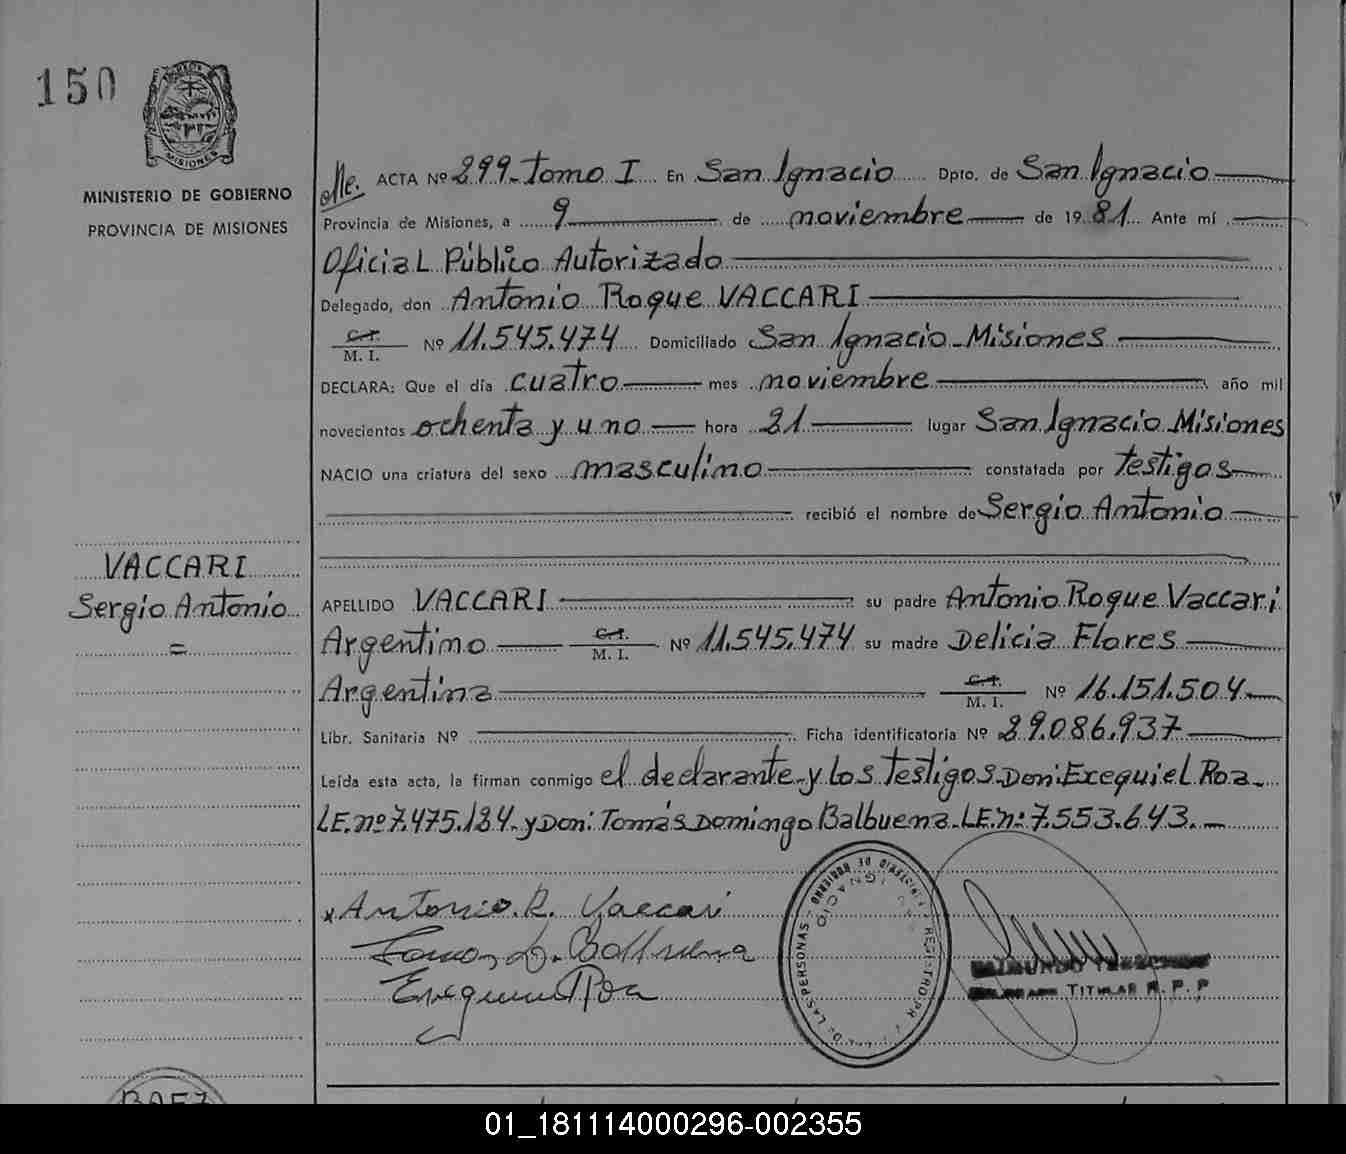 150
MISIONES
MINISTERIO DE GOBIERNO
PROVINCIA DE MISIONES
ACTA Nº 299 - Tomo I En San Ignacio Dpto. de San Ignacio
Provincia de Misiones, a 9 de noviembre de 1981 Ante mí
Oficial Público Autorizado
Delegado, don Antonio Roque VACCARI
C.I.
M. I. Nº 11.545.474 Domiciliado San Ignacio - Misiones
DECLARA: Que el día cuatro mes noviembre año mil
novecientos ochenta y uno hora 21 lugar San Ignacio Misiones
NACIO una criatura del sexo masculino constatada por testigos
recibió el nombre de Sergio Antonio
VACCARI
Sergio Antonio
=
APELLIDO VACCARI su padre Antonio Roque Vaccari
Argentino C.I. M. I. Nº 11.545.474 su madre Delicia Flores
Argentina C.I. M. I. Nº 16.151.504
Libr. Sanitaria Nº Ficha identificatoria Nº 29.086.937
Leída esta acta, la firman conmigo el declarante y los testigos Don: Exequiel Roa
LE. nº 7.475.184 - y Don: Tomás Domingo Balbuena - LE. nº: 7.553.643. -
Antonio R. Vaccari
Tomas D. Balbuena
Exequiel Roa
REGISTRO PR DE LAS PERSONAS - MINISTERIO DE GOBIERNO
IGNACIO
RAIMUNDO
DELEGADO TITULAR R. P. P
BAEZ
01_181114000296-002355